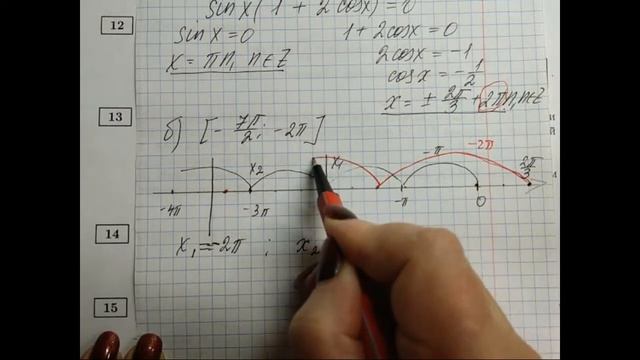 12
sin x ( 1 + 2 cos x ) = 0
sin x = 0
1 + 2cos x = 0
x = πn, n∈Z
2cos x = -1
cos x = -1/2
x = ± 2π/3 + 2πn, n∈Z
13
б) [ - 7π/2 ; -2π ]
x₂ x₁ -π -2π 2π/3
-4π -3π -π 0
14
x₁ = -2π ; x₂
15
и
й